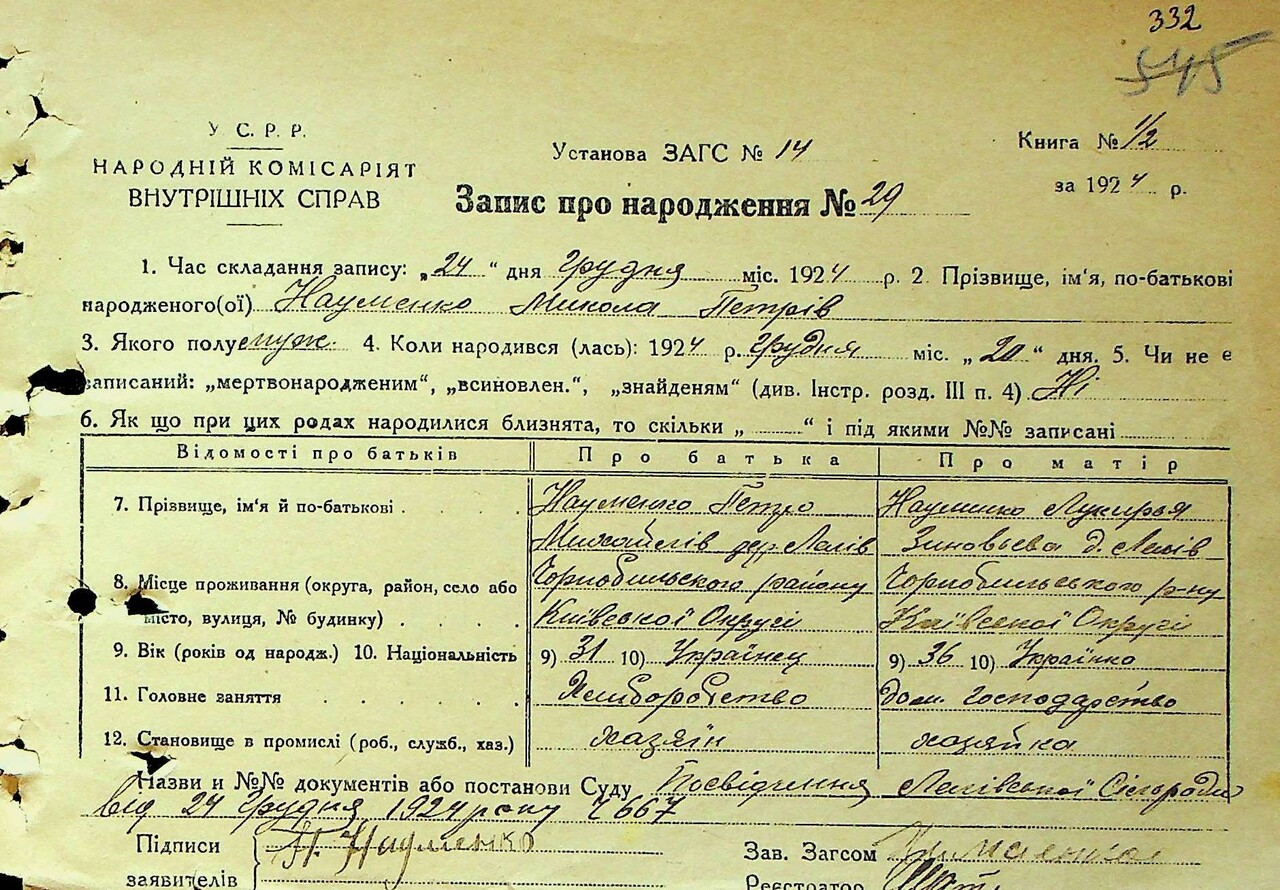 332
545
У С. Р. Р.
НАРОДНІЙ КОМІСАРІЯТ
ВНУТРІШНІХ СПРАВ
Установа ЗАГС № 14
Книга № 1/2
за 1924 р.
Запис про народження № 29
1. Час складання запису: „24“ дня Грудня міс. 1924 р. 2. Прізвище, ім'я, по-батькові
народженого(ої) Науменко Микола Петрів
3. Якого полу муж. 4. Коли народився (лась): 1924 р. Грудня міс. „20“ дня. 5. Чи не є
записаний: „мертвонародженим“, „всиновлен.“, „знайденям“ (див. Інстр. розд. III п. 4) Ні
6. Як що при цих родах народилися близнята, то скільки „ “ і під якими №№ записані
Відомості про батьків Про батька Про матір
7. Прізвище, ім'я й по-батькові Науменко Петро Науменко Лукирья
Михайлів дер. Лелів Зиновьева д. Лелів
8. Місце проживання (округа, район, село або Чорнобильского району Чорнобильського р-ну
місто, вулиця, № будинку) Київської Округі Київської Округі
9. Вік (років од народж.) 10. Національність 9) 31 10) Українец 9) 36 10) Українко
11. Головне заняття Хлиборобство дом. господарство
12. Становище в промислі (роб., служб., хаз.) хазяїн хазяйка
Назви и №№ документів або постанови Суду Посвідчення Лелівської Сільради
від 24 Грудня 1924 року 667
Підписи П. Науменко Зав. Загсом
заявителів Реєстратор